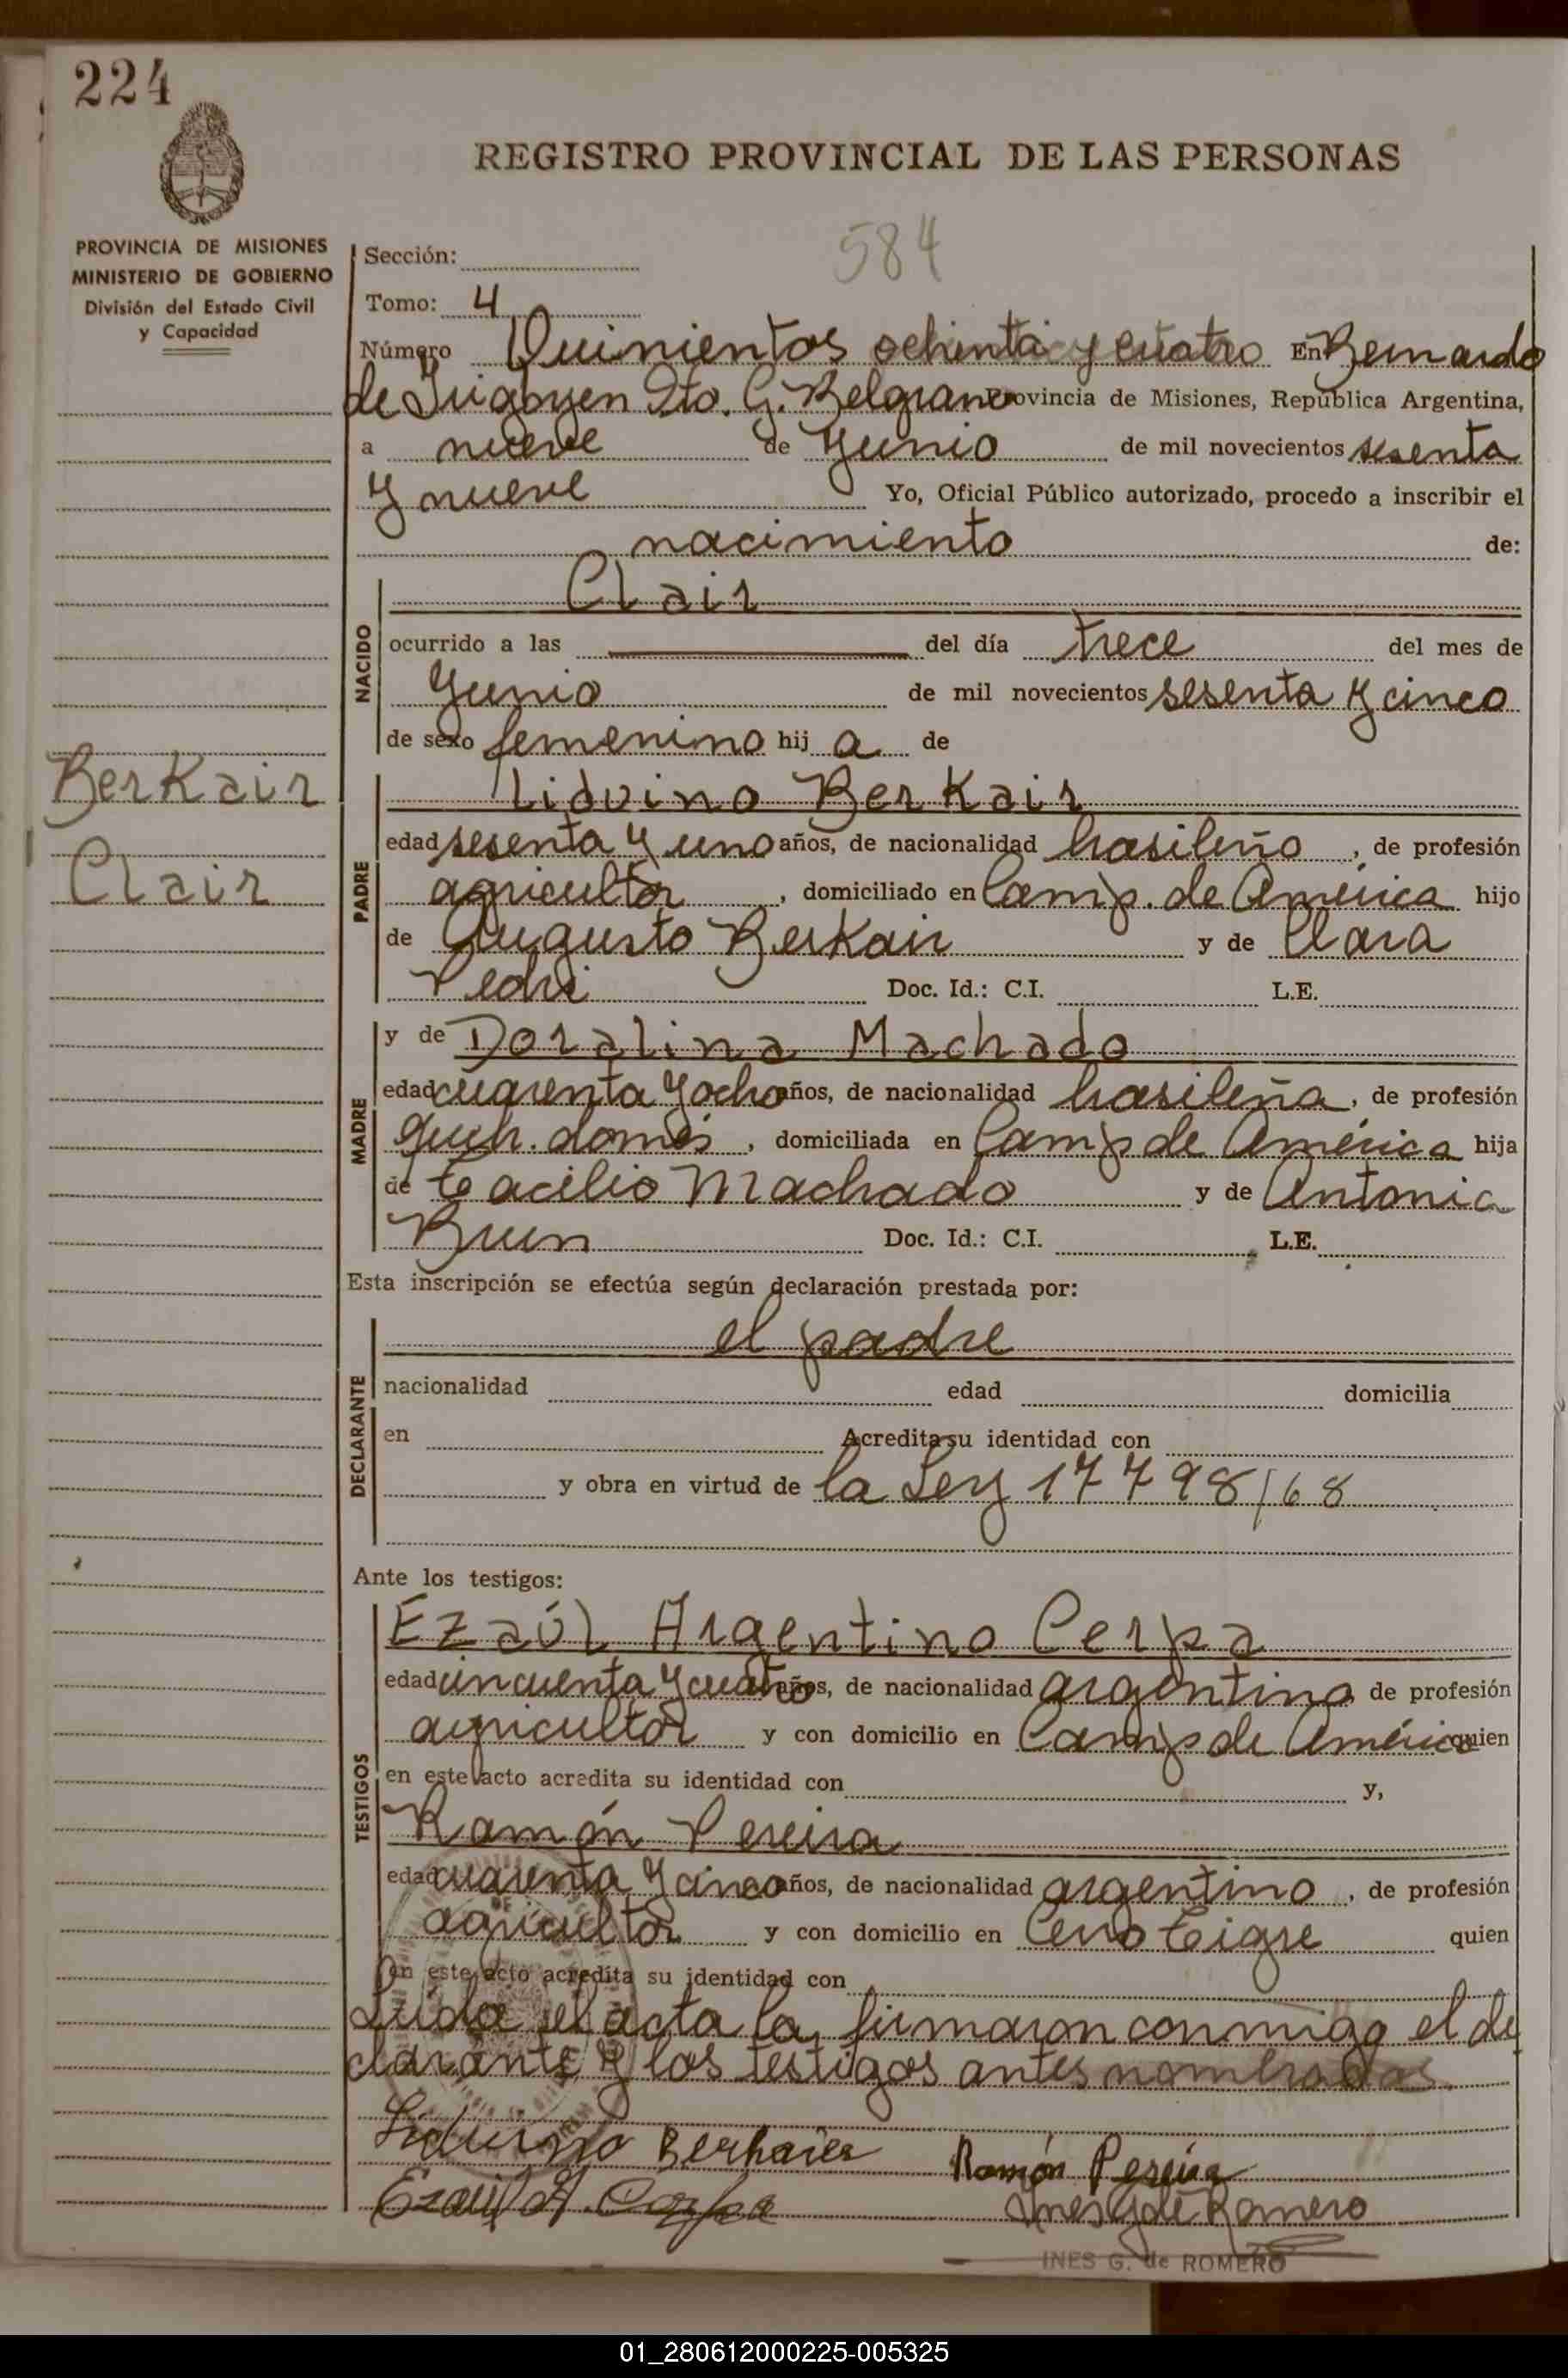 224
REGISTRO PROVINCIAL DE LAS PERSONAS
PROVINCIA DE MISIONES
MINISTERIO DE GOBIERNO
División del Estado Civil
y Capacidad
584
Sección:
Tomo: 4
Número Quinientos ochenta y cuatro En Bernardo
de Irigoyen Dto. G. Belgrano Provincia de Misiones, República Argentina,
a nueve de Junio de mil novecientos sesenta
y nueve Yo, Oficial Público autorizado, procedo a inscribir el
nacimiento de:
NACIDO
Clair
ocurrido a las del día trece del mes de
Junio de mil novecientos sesenta y cinco
de sexo femenino hij a de
Berkair
Clair
PADRE
Liduino Berkair
edad sesenta y uno años, de nacionalidad brasileño, de profesión
agricultor, domiciliado en Camp. de América hijo
de Augusto Berkair y de Clara
Pedri Doc. Id.: C.I. L.E.
MADRE
y de Doralina Machado
edad cuarenta y ocho años, de nacionalidad brasileña, de profesión
Queh. domés, domiciliada en Camp de América hija
de Cacilio Machado y de Antonia
Doc. Id.: C.I. L.E.
Esta inscripción se efectúa según declaración prestada por:
DECLARANTE
el padre
nacionalidad edad domicilia
en Acredita su identidad con
y obra en virtud de la Ley 17798/68
Ante los testigos:
TESTIGOS
Ezaúl Argentino Cerpa
edad cincuenta y cuatro años, de nacionalidad argentino de profesión
agricultor y con domicilio en Camp de América quien
en este acto acredita su identidad con y,
Ramón Pereira
edad cuarenta y cinco años, de nacionalidad argentino, de profesión
agricultor y con domicilio en Cerro Tigre quien
en este acto acredita su identidad con
Leída el acta la firmaron conmigo el de
clarante y los testigos antes nombrados.
Liduino Berkaier Ramón Pereira
Ezaúl A. Cerpa Ines G de Romero
INES G. de ROMERO
01_280612000225-005325